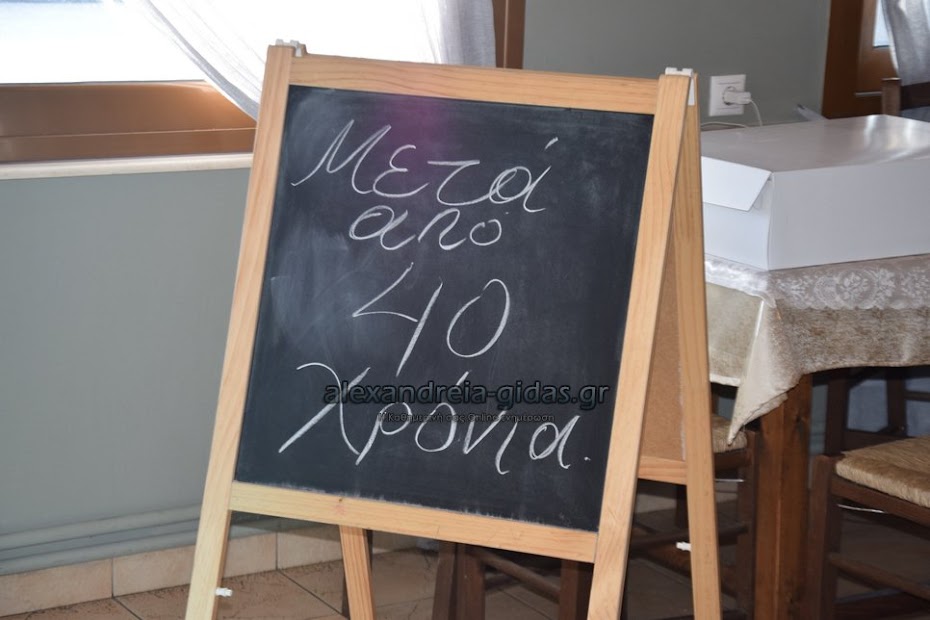 Μετά
από
40
χρόνια.
alexandreia-gidas.gr
Η Καθημερινή σας Online ενημέρωση